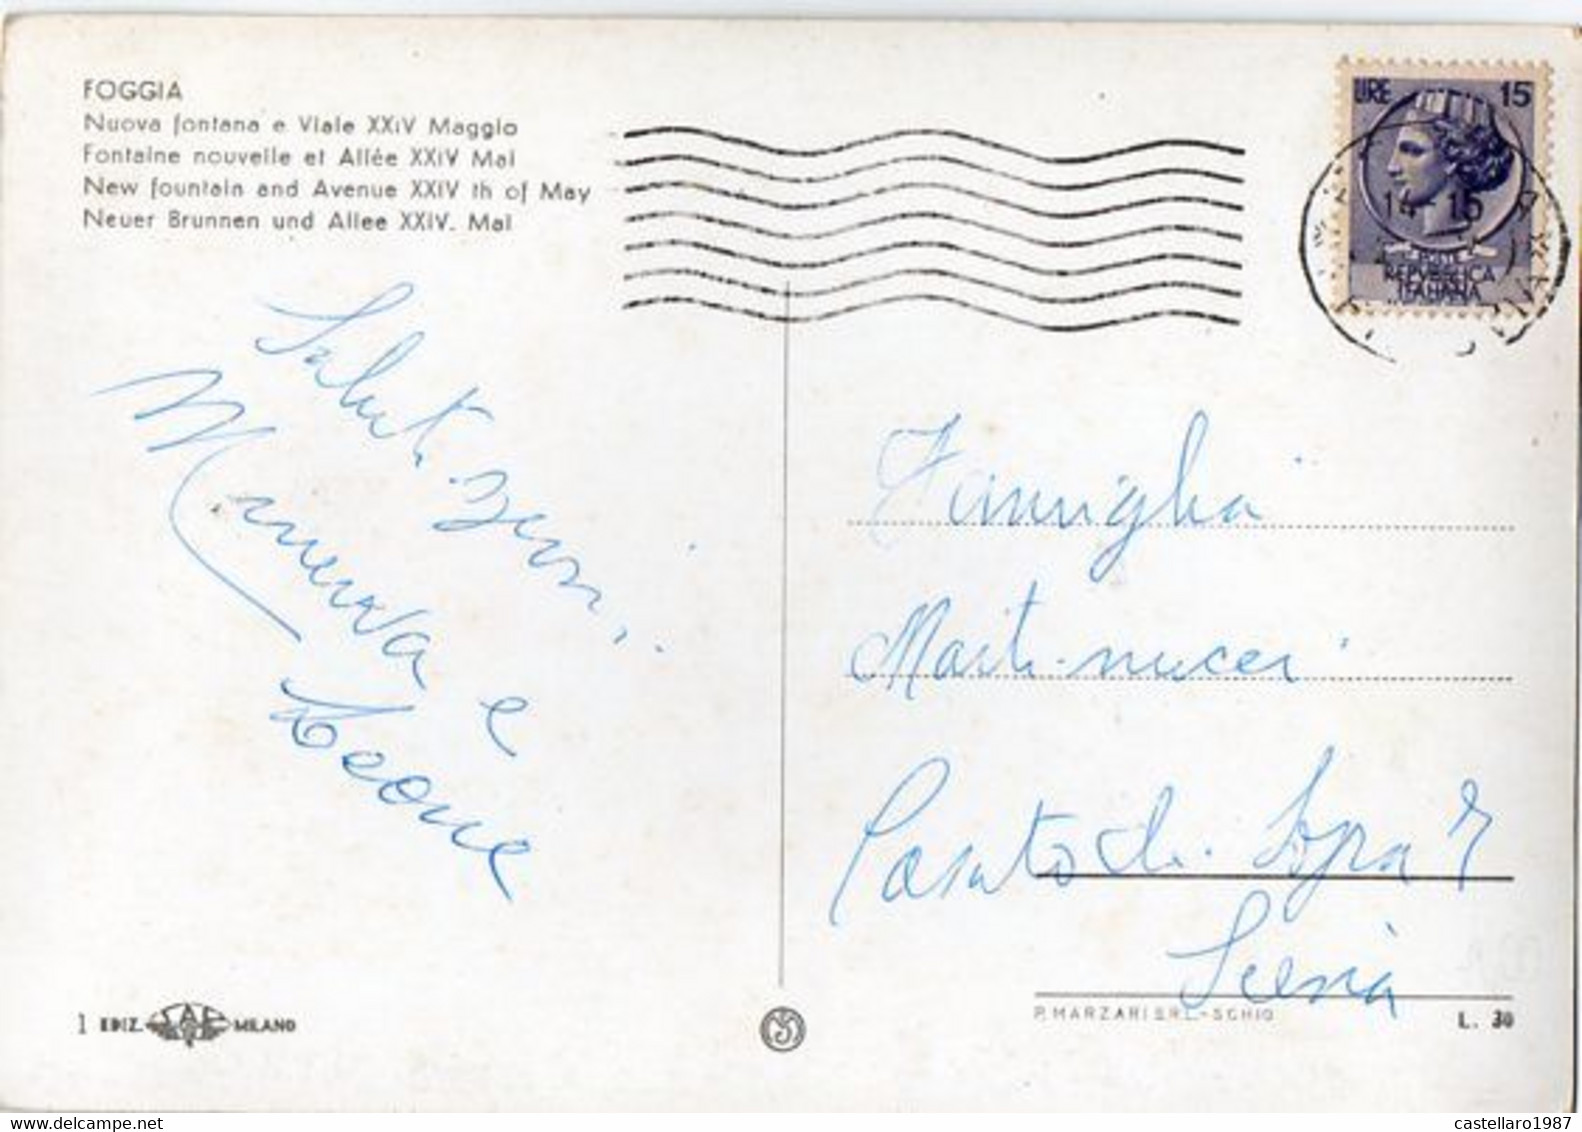 FOGGIA
Nuova fontana e Viale XXIV Maggio
Fontaine nouvelle et Allée XXIV Mai
New fountain and Avenue XXIV th of May
Neuer Brunnen und Allee XXIV. Mai
LIRE 15
14-15
POSTE
REPVBBLICA
ITALIANA
Saluti
Minerva e
Leone
Famiglia
Martinucci
Casato di Sopra 7
Siena
1 EDIZ. SAF MILANO
P. MARZARI S.R.L. - SCHIO
L. 30
castellaro1987